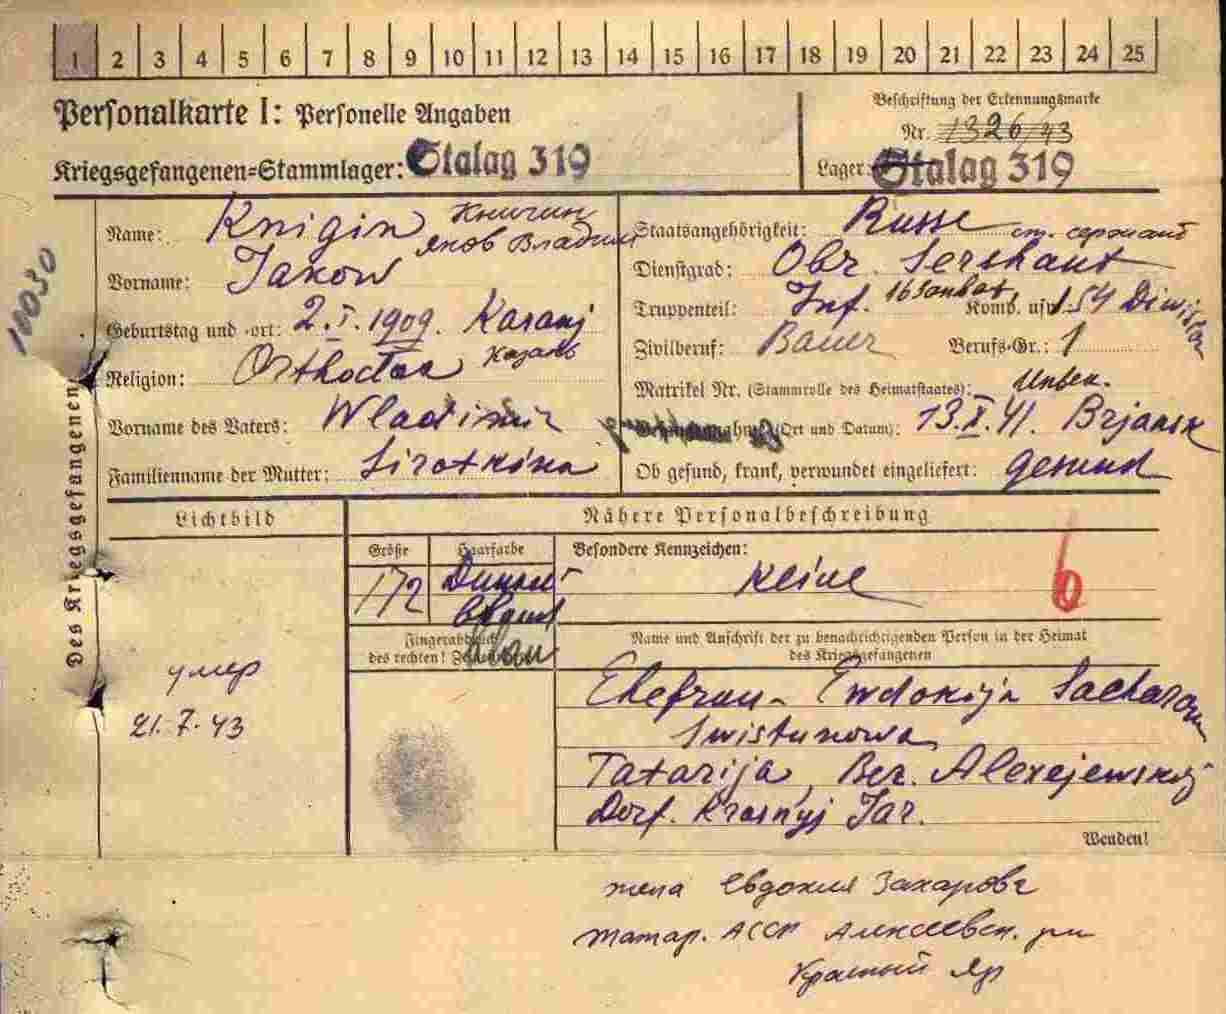 1 2 3 4 5 6 7 8 9 10 11 12 13 14 15 16 17 18 19 20 21 22 23 24 25
Personalkarte I: Personelle Angaben
Kriegsgefangenen=Stammlager: Stalag 319
Beschriftung der Erkennungsmarke
Nr. 1326/43
Lager: Stalag 319
10030
Des Kriegsgefangenen
Name: Knigin Книгин
Яков Владим
Vorname: Jakow
Geburtstag und -ort: 2.I.1909. Kasanj
Казань
Religion: Orthodox
Vorname des Vaters: Wladimir
Familienname der Mutter: Sirotkina
Staatsangehörigkeit: Russe
ст. сержант
Dienstgrad: Obr. Sershant
Truppenteil: Inf. 16 Sanbat Komp. usw. 154 Division
Zivilberuf: Bauer Berufs-Gr.: 1
Matrikel Nr. (Stammrolle des Heimatstaates): Unbek.
Gefangennahme (Ort und Datum): 13.X.41. Brjansk
Ob gesund, krank, verwundet eingeliefert: gesund
Lichtbild
умер
21.7.43
Nähere Personalbeschreibung
Größe
172
Haarfarbe
Dunkel
Besondere Kennzeichen:
Keine
6
Fingerabdruck
des rechten!
Name und Anschrift der zu benachrichtigenden Person in der Heimat
des Kriegsgefangenen
Ehefrau - Ewdokija Sacharowa
Swistunowa
Tatarija, Bez. Alexejewskij
Dorf. Krasnyj Jar.
Wenden!
жена Евдокия Захаровa
татар. АССР Алексеевск. рн
Красный Яр